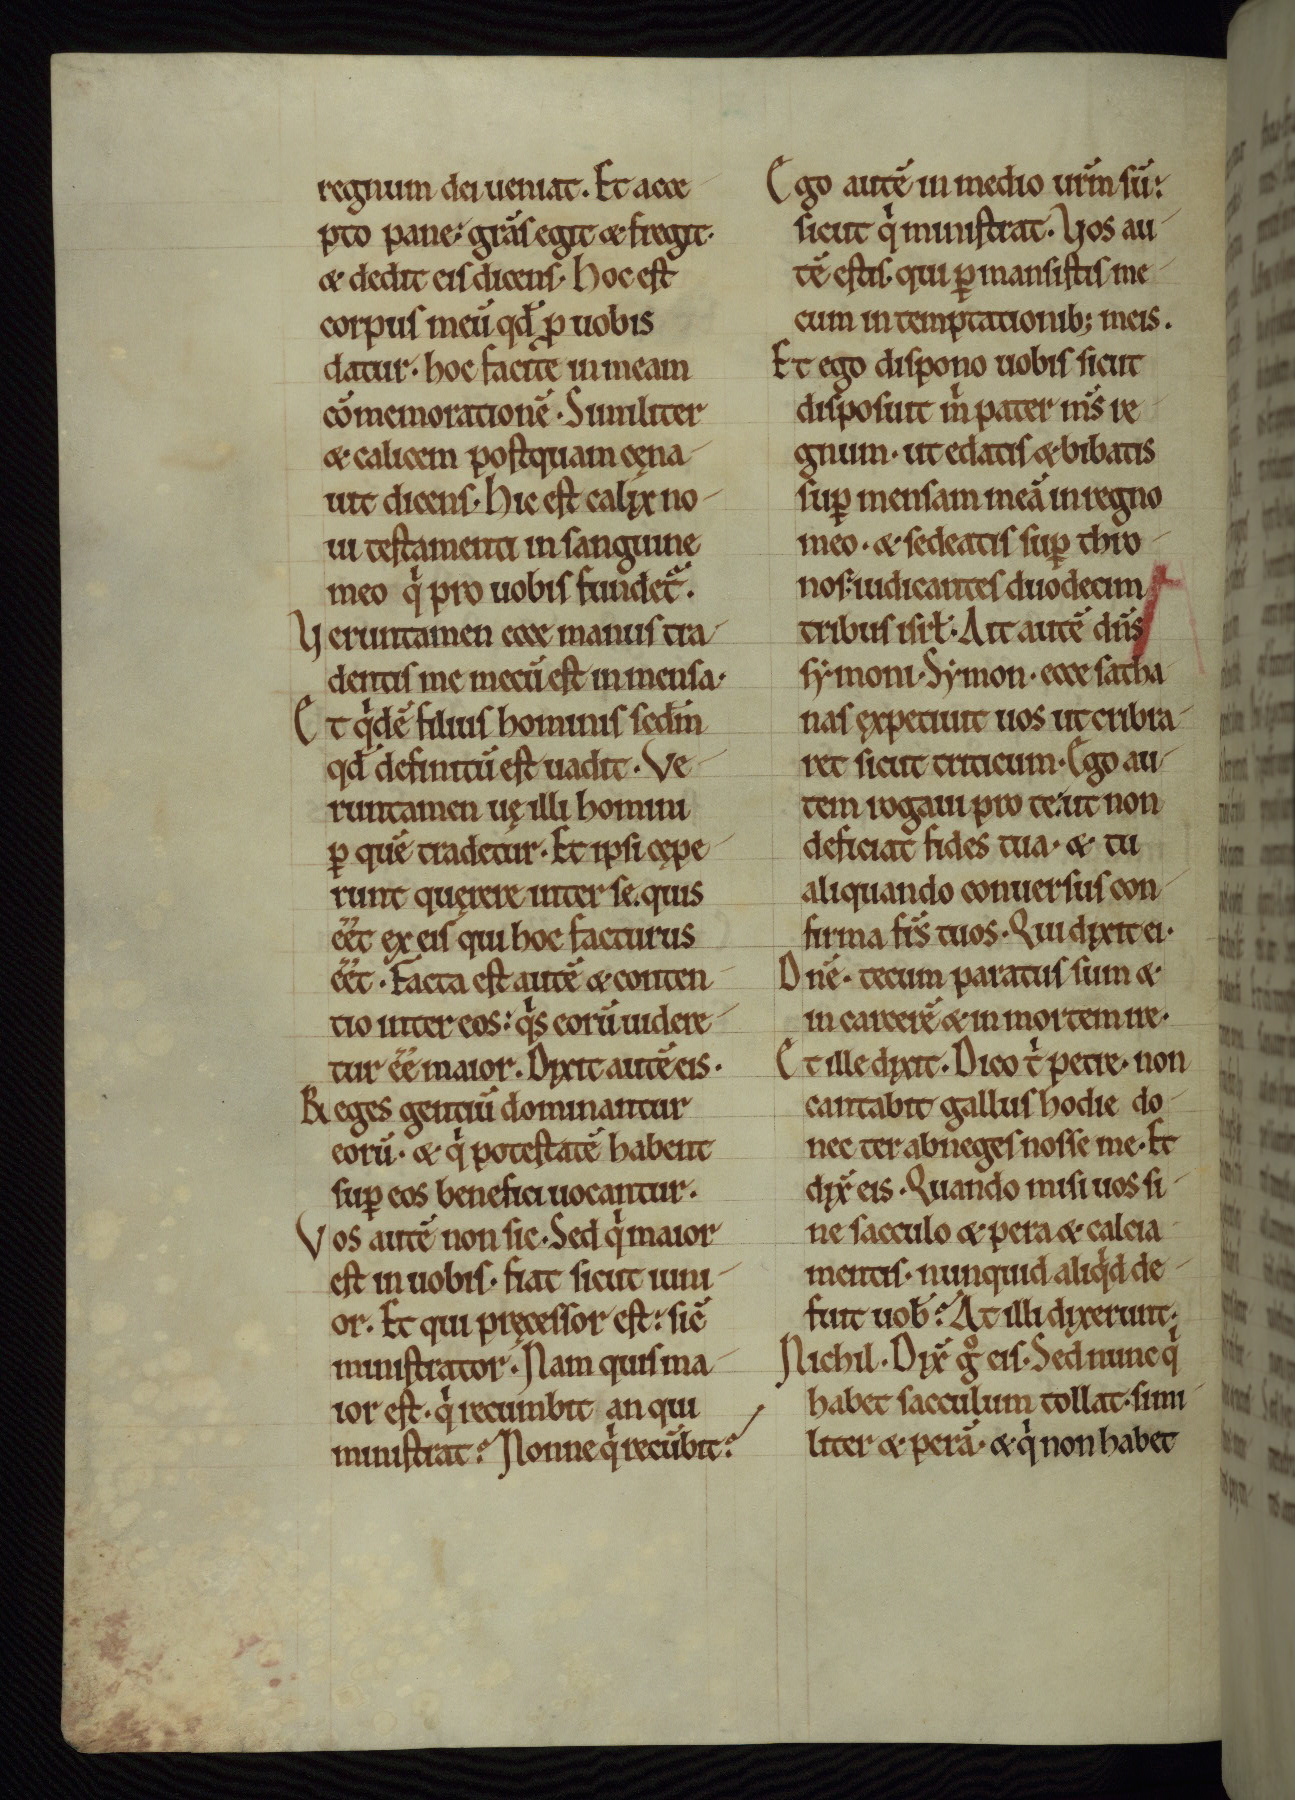 regnum dei ueniat. Et acce
pto pane: gr̃as egit & fregit.
& dedit eis dicens. Hoc est
corpus meũ qđ ꝓ uobis
datur. hoc facite in meam
cõmemorationẽ. Similiter
& calicem postquam cęna
uit dicens. Hic est calix no
ui testamenti in sanguine
meo qͥ pro uobis fundet᷑.
Veruntamen ecce manus tra
dentis me mecũ est in mensa.
Et qͥdẽ filius hominis sedm̃
qđ definitũ est uadit. Ve
runtamen uę illi homini
ꝑ quẽ tradetur. Et ipsi cępe
runt quęrere inter se. quis
eẽt ex eis qui hoc facturus
eẽt. Facta est autẽ & conten
tio inter eos: qͥs eorũ uidere
tur eẽ maior. Dixit autẽ eis.
Reges gentiũ dominantur
eorũ. & qͥ potestatẽ habent
suꝑ eos benefici uocantur.
Vos autẽ non sic. Sed qͥ maior
est in uobis. fiat sicut iuni
or. Et qui pręcessor est: sic̃
ministrator. Nam quis ma
ior est. qͥ recumbit an qui
ministrat? Nonne qͥ recũbit?
Ego autẽ in medio ur̃m sũ:
sicut qͥ ministrat. Vos au
tẽ estis. qui ꝑmansistis me
cum in temptationib; meis.
Et ego dispono uobis sicut
disposuit mͥ pater ms̃ re
gnum. ut edatis & bibatis
suꝑ mensam meã in regno
meo. & sedeatis suꝑ thro
nos: iudicantes duodecim
tribus isrł. Ait autẽ dñs
symoni. Symon. ecce satha
nas expetiuit uos ut cribra
ret sicut triticum. Ego au
tem rogaui pro te: ut non
deficiat fides tua. & tu
aliquando conuersus con
firma fr̃s tuos. Qui dixit ei.
Dñe. tecum paratus sum &
in carcerẽ & in mortem ire.
Et ille dixit. Dico tͥ petre. non
cantabit gallus hodie do
nec ter abneges nosse me. Et
dix̃ eis. Quando misi uos si
ne sacculo & pera & calcia
mentis. nunquid aliqͥd de
fuit uoƀ? At illi dixerunt.
Nichil. Dix̃ gͦ eis. Sed nunc qͥ
habet sacculum tollat. simi
liter & perã. & qͥ non habet